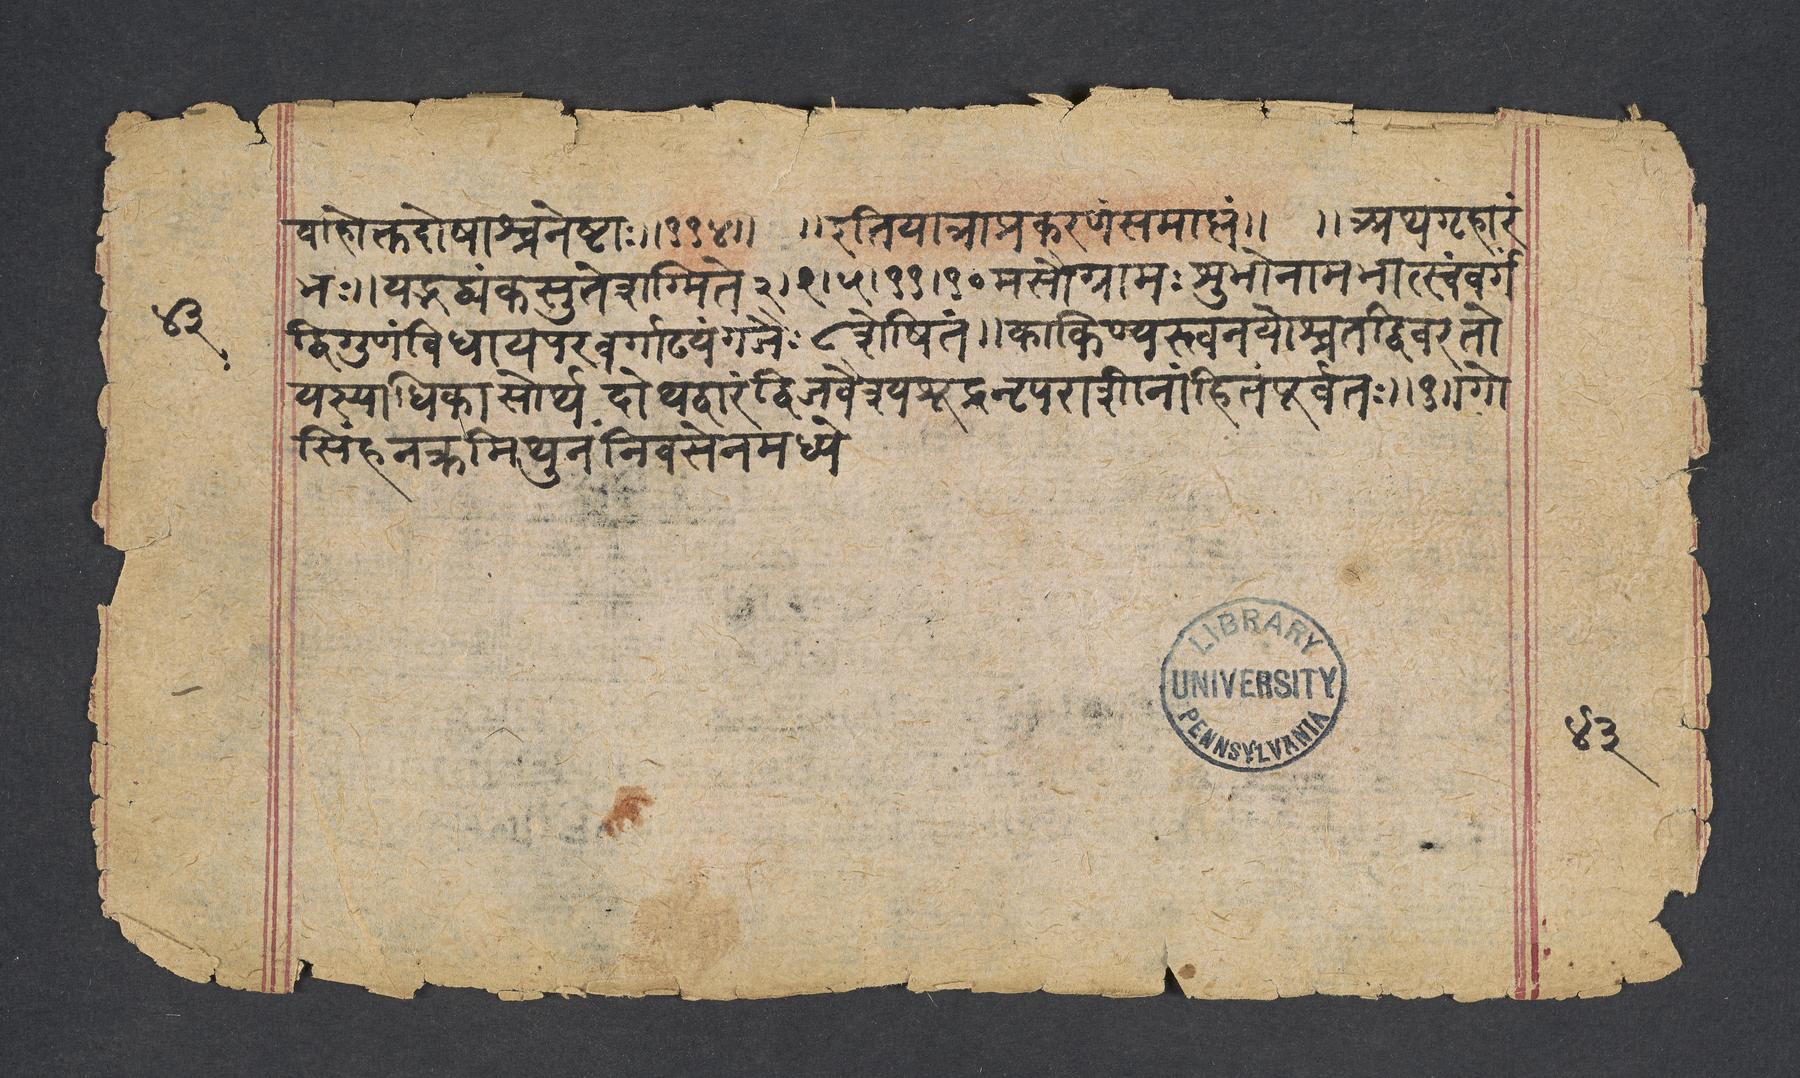 वाहोक्तदोषाश्चनेष्टाः॥११४॥ ॥इतियात्राप्रकरणंसमाप्तं॥ ॥अथगृहारं
भः॥यद्भद्व्यंकसुतेशदिग्मिते२।९।५।११।१०मसौग्रामःशुभोनामभात्स्वंवर्गं
द्विगुणंविधायपरवर्गाढ्यंगजैः८शेषितं॥काकिण्यस्त्वनयोश्चतद्विवरतो
यस्याधिकासोर्थदोथद्वारंद्विजवैश्यशूद्रनृपराशीनांहितंपूर्वतः॥१॥गो
सिंहनक्रमिथुनंनिवसेनमध्ये
४३
४३
LIBRARY
UNIVERSITY
PENNSYLVANIA